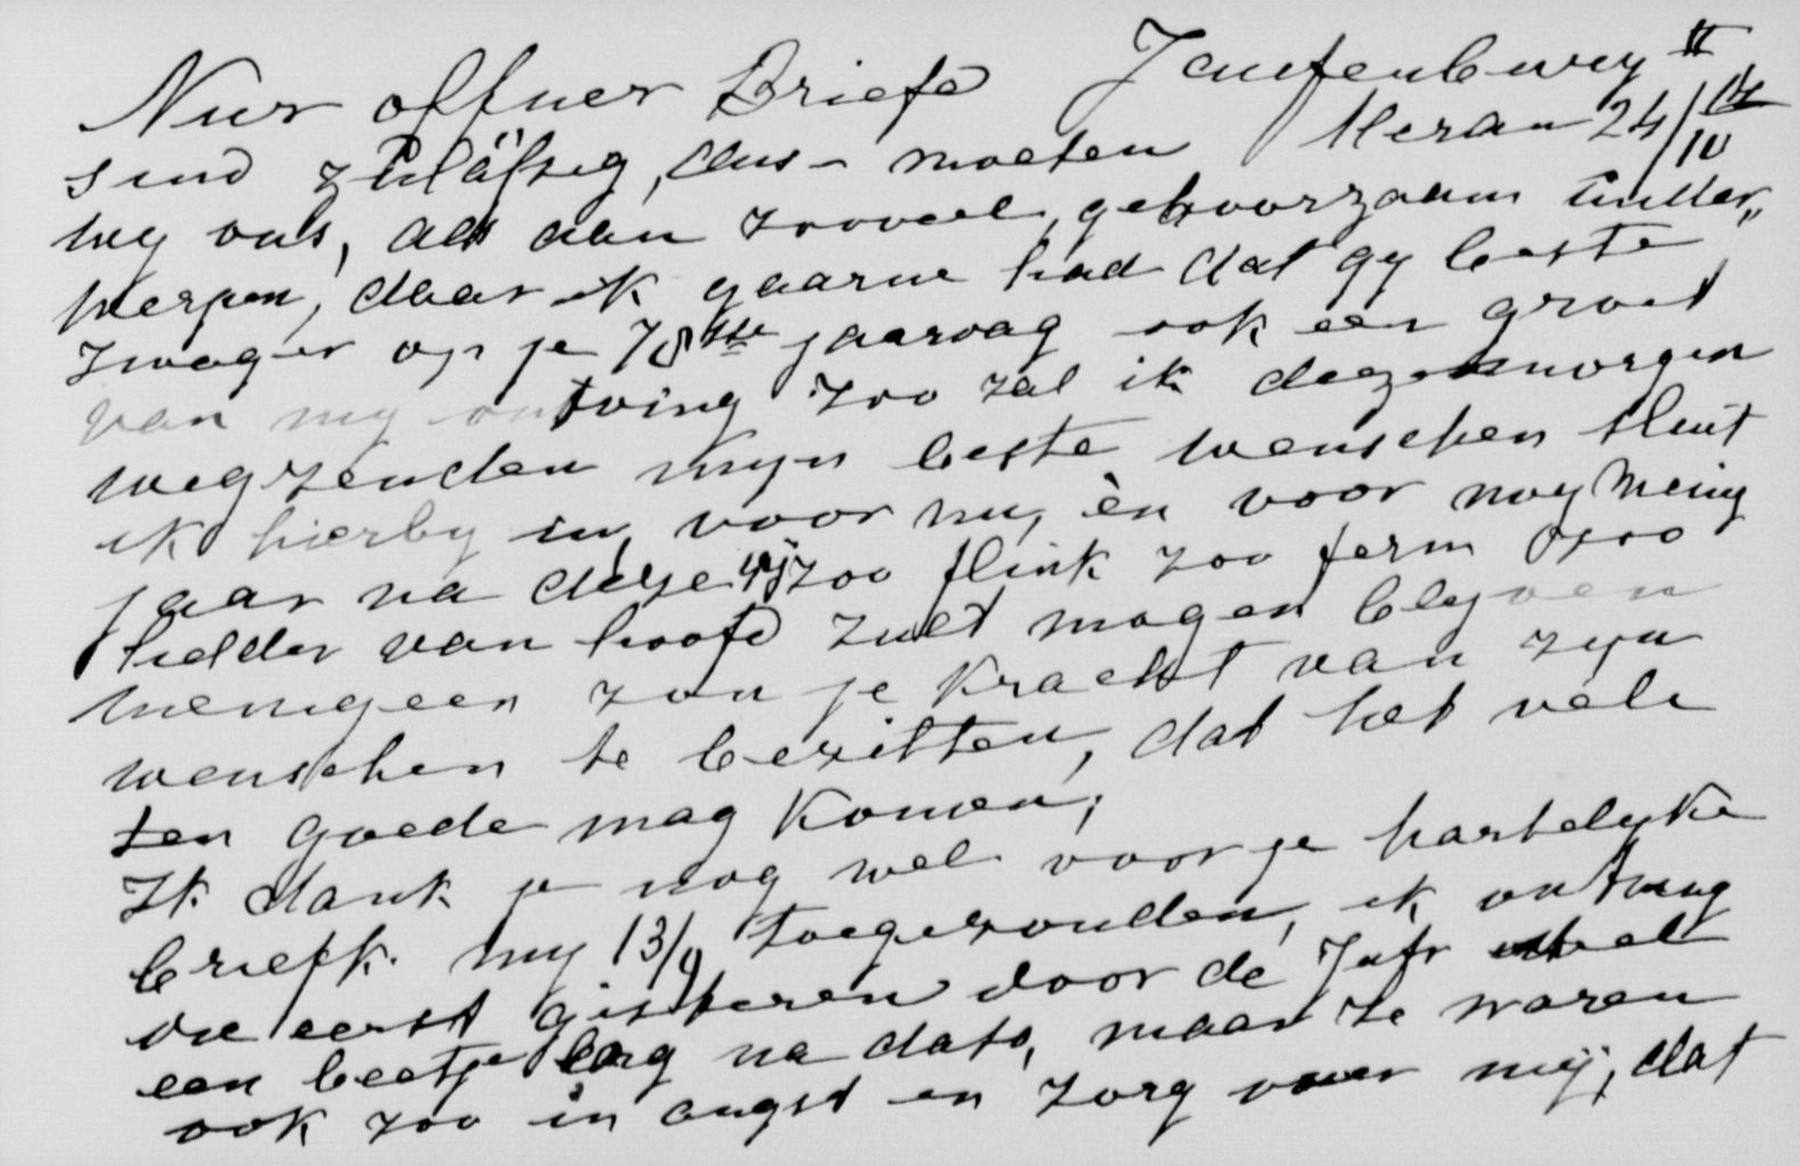 Nur offner Briefe Jaufenburg II
sind zuläßig, dus - moeten Meran 24/10 14
wy ons, als aan zooveel, gehoorzaam onder„
werpen, daar ik gaarne had dat gy beste
zwager op je 78ste jaardag ook een groet
van my ontving zoo zal ik dezen morgen
wegzenden myn beste wenschen sluit
ik hierby in, voor nu, èn voor nog menig
jaar na deze, zoo flink zoo ferm zoo
helder van hoofd zult mogen blyven
menigeen zou je kracht van zyn
wenschen te bezitten, dat het vele
ten goede mag komen;
Ik dank je nog wel voor je hartelyke
briefk. my 13/9 toegezonden, ik ontving
die eerst gisteren door de Jufr wel
een beetje lang na dato, maar ze waren
ook zoo in angst en zorg over mij, dat